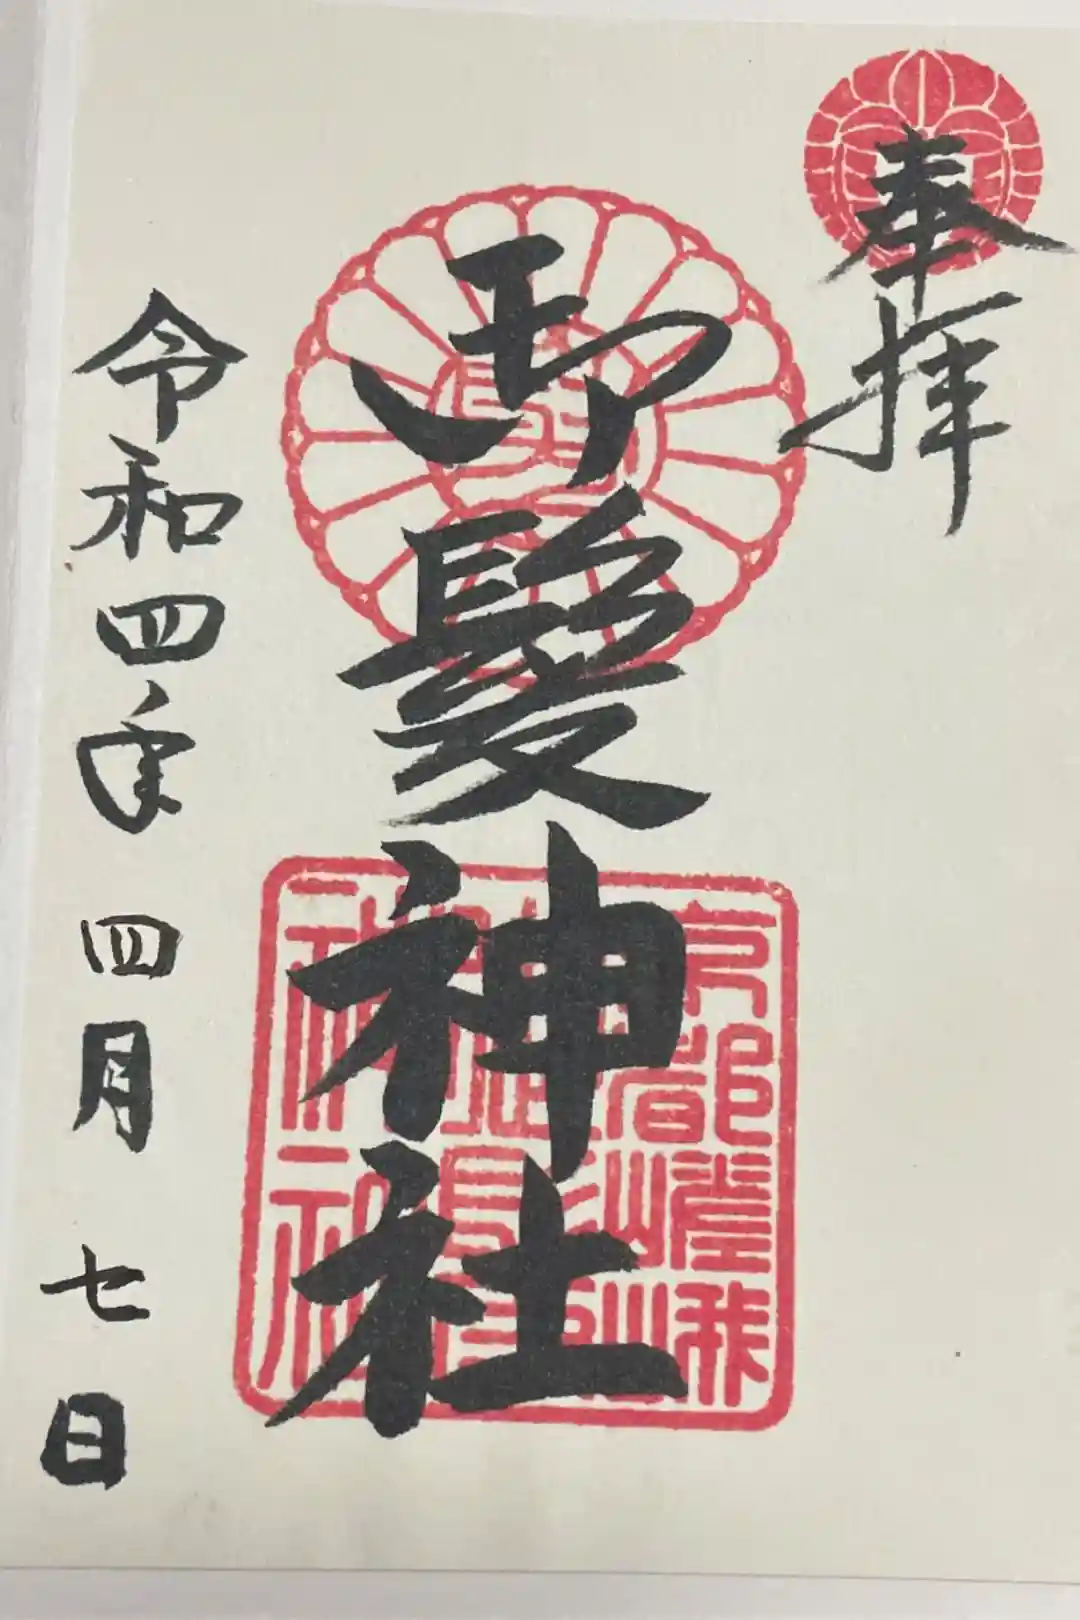 奉拝
御髪神社
京都嵯峨
神社
令和四年四月七日